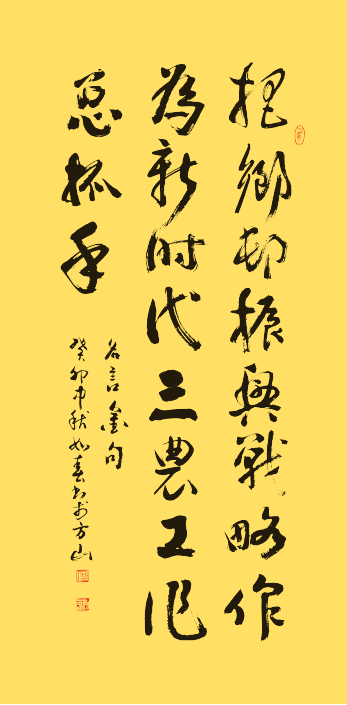 把鄉邨振興戰略作
為新时代三農工作
总抓手
名言金句
癸卯中秋如春书于方山